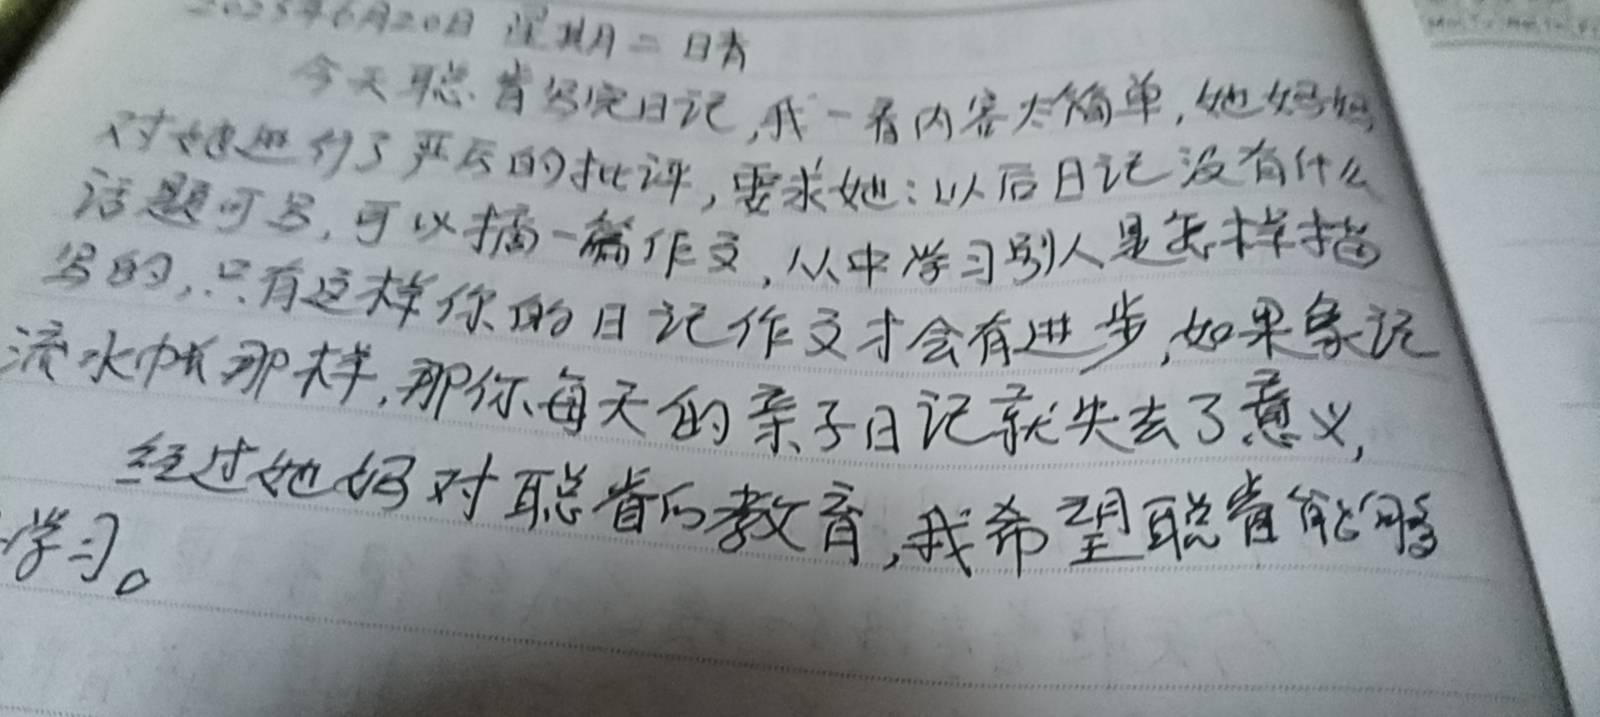 2023年6月20日 星期二 晴
今天聪睿写完日记,我一看内容太简单,她妈妈
对她进行了严厉的批评,要求她:以后日记没有什么
话题可写,可以摘一篇作文,从中学习别人是怎样描
写的,只有这样你的日记作文才会有进步,如果象记
流水帐那样,那你每天的亲子日记就失去了意义,
经过她妈对聪睿的教育,我希望聪睿能够
学习。